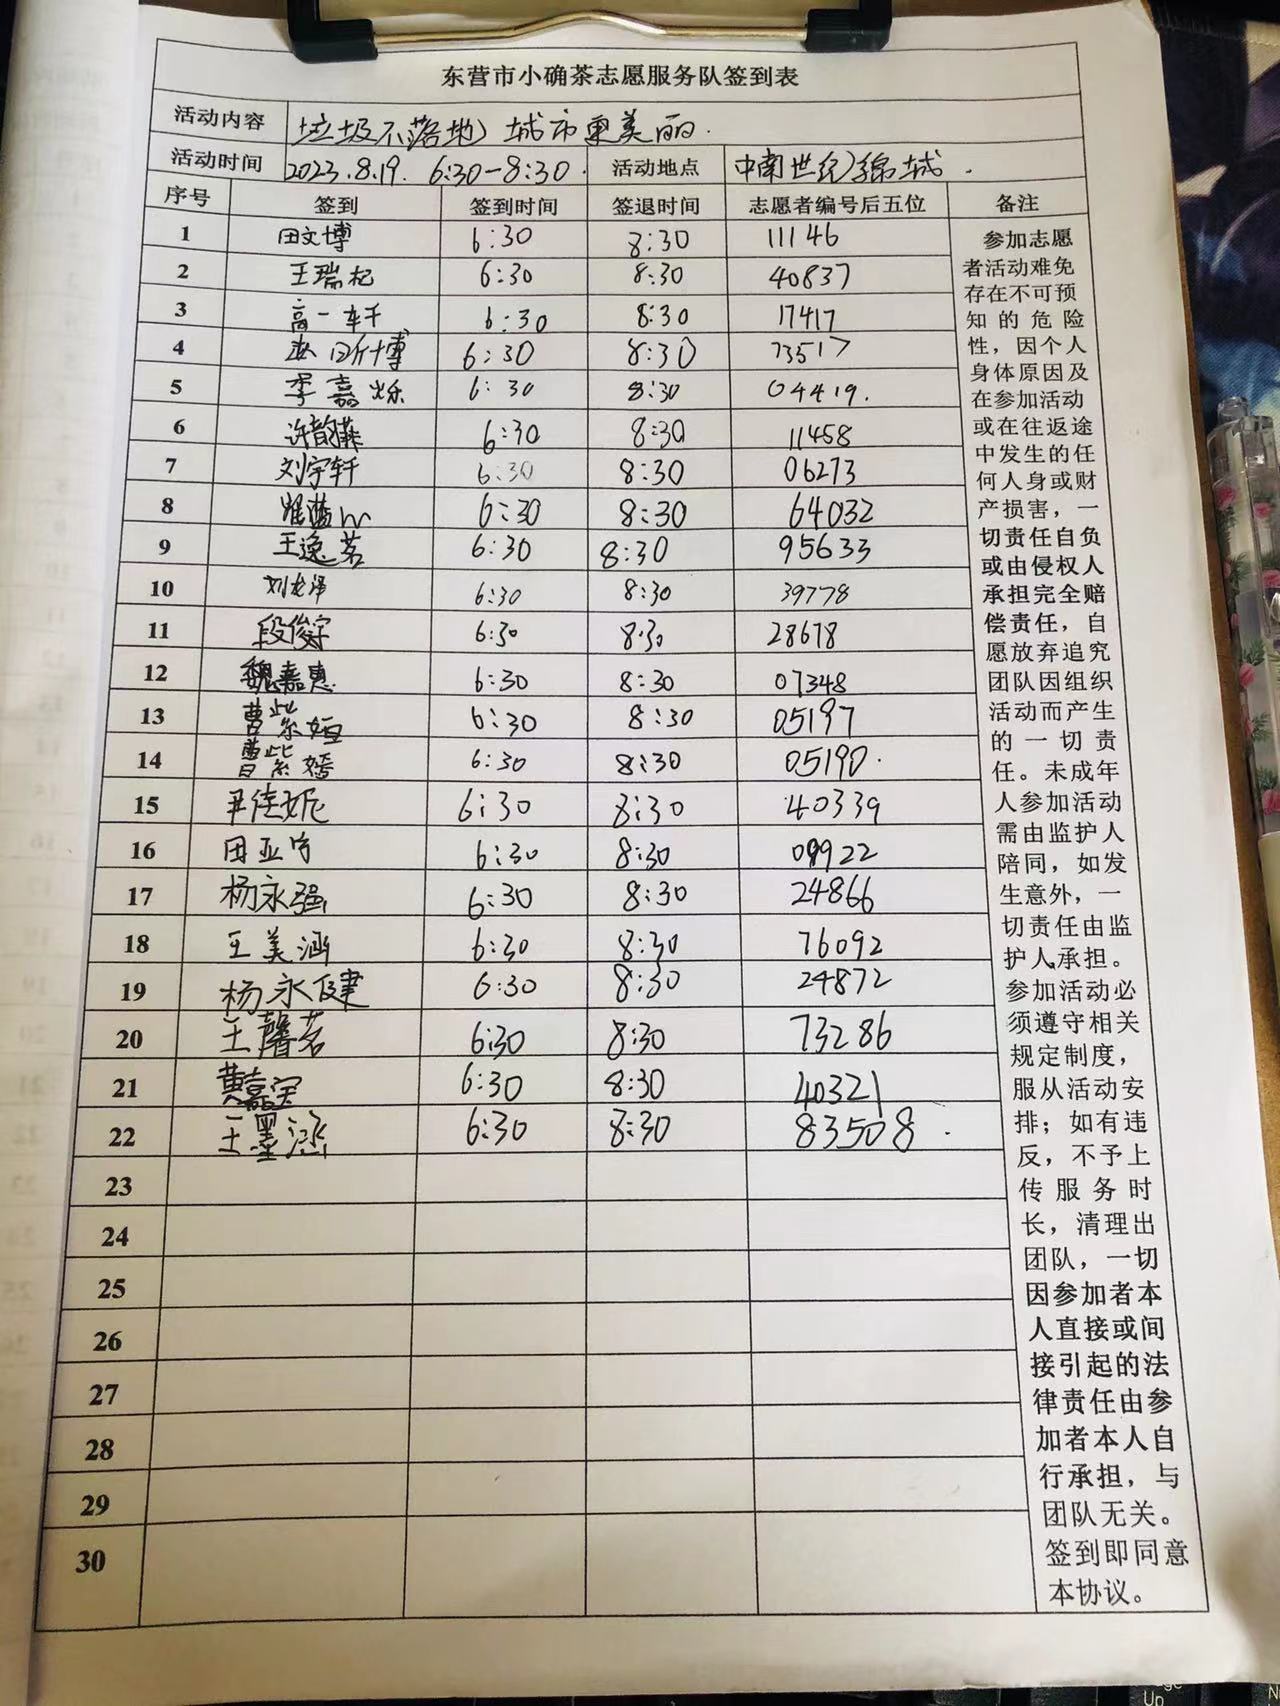 东营市小确茶志愿服务队签到表
活动内容 垃圾不落地 城市更美丽.
活动时间 2023.8.19. 6:30-8:30. 活动地点 中南世纪锦城.
序号 签到 签到时间 签退时间 志愿者编号后五位 备注
1 田文博 6:30 8:30 11146
2 王瑞杞 6:30 8:30 40837
3 高一轩 6:30 8:30 17417
4 6:30 8:30 73517
5 李嘉烁 6:30 8:30 04419.
6 6:30 8:30 11458
7 刘宇轩 6:30 8:30 06273
8 6:30 8:30 64032
9 王逸茗 6:30 8:30 95633
10 刘龙泽 6:30 8:30 39778
11 段俊宇 6:30 8:30 28678
12 魏嘉惠 6:30 8:30 07348
13 曹紫姮 6:30 8:30 05197
14 曹紫嫣 6:30 8:30 05190.
15 尹佳妮 6:30 8:30 40339
16 田亚宁 6:30 8:30 09922
17 杨永强 6:30 8:30 24866
18 王美涵 6:30 8:30 76092
19 杨永健 6:30 8:30 24872
20 王馨茗 6:30 8:30 73286
21 黄嘉宝 6:30 8:30 40321
22 王墨涵 6:30 8:30 83508.
23
24
25
26
27
28
29
30
参加志愿
者活动难免
存在不可预
知的危险
性，因个人
身体原因及
在参加活动
或在往返途
中发生的任
何人身或财
产损害，一
切责任自负
或由侵权人
承担完全赔
偿责任，自
愿放弃追究
团队因组织
活动而产生
的一切责
任。未成年
人参加活动
需由监护人
陪同，如发
生意外，一
切责任由监
护人承担。
参加活动必
须遵守相关
规定制度，
服从活动安
排；如有违
反，不予上
传服务时
长，清理出
团队，一切
因参加者本
人直接或间
接引起的法
律责任由参
加者本人自
行承担，与
团队无关。
签到即同意
本协议。
Up